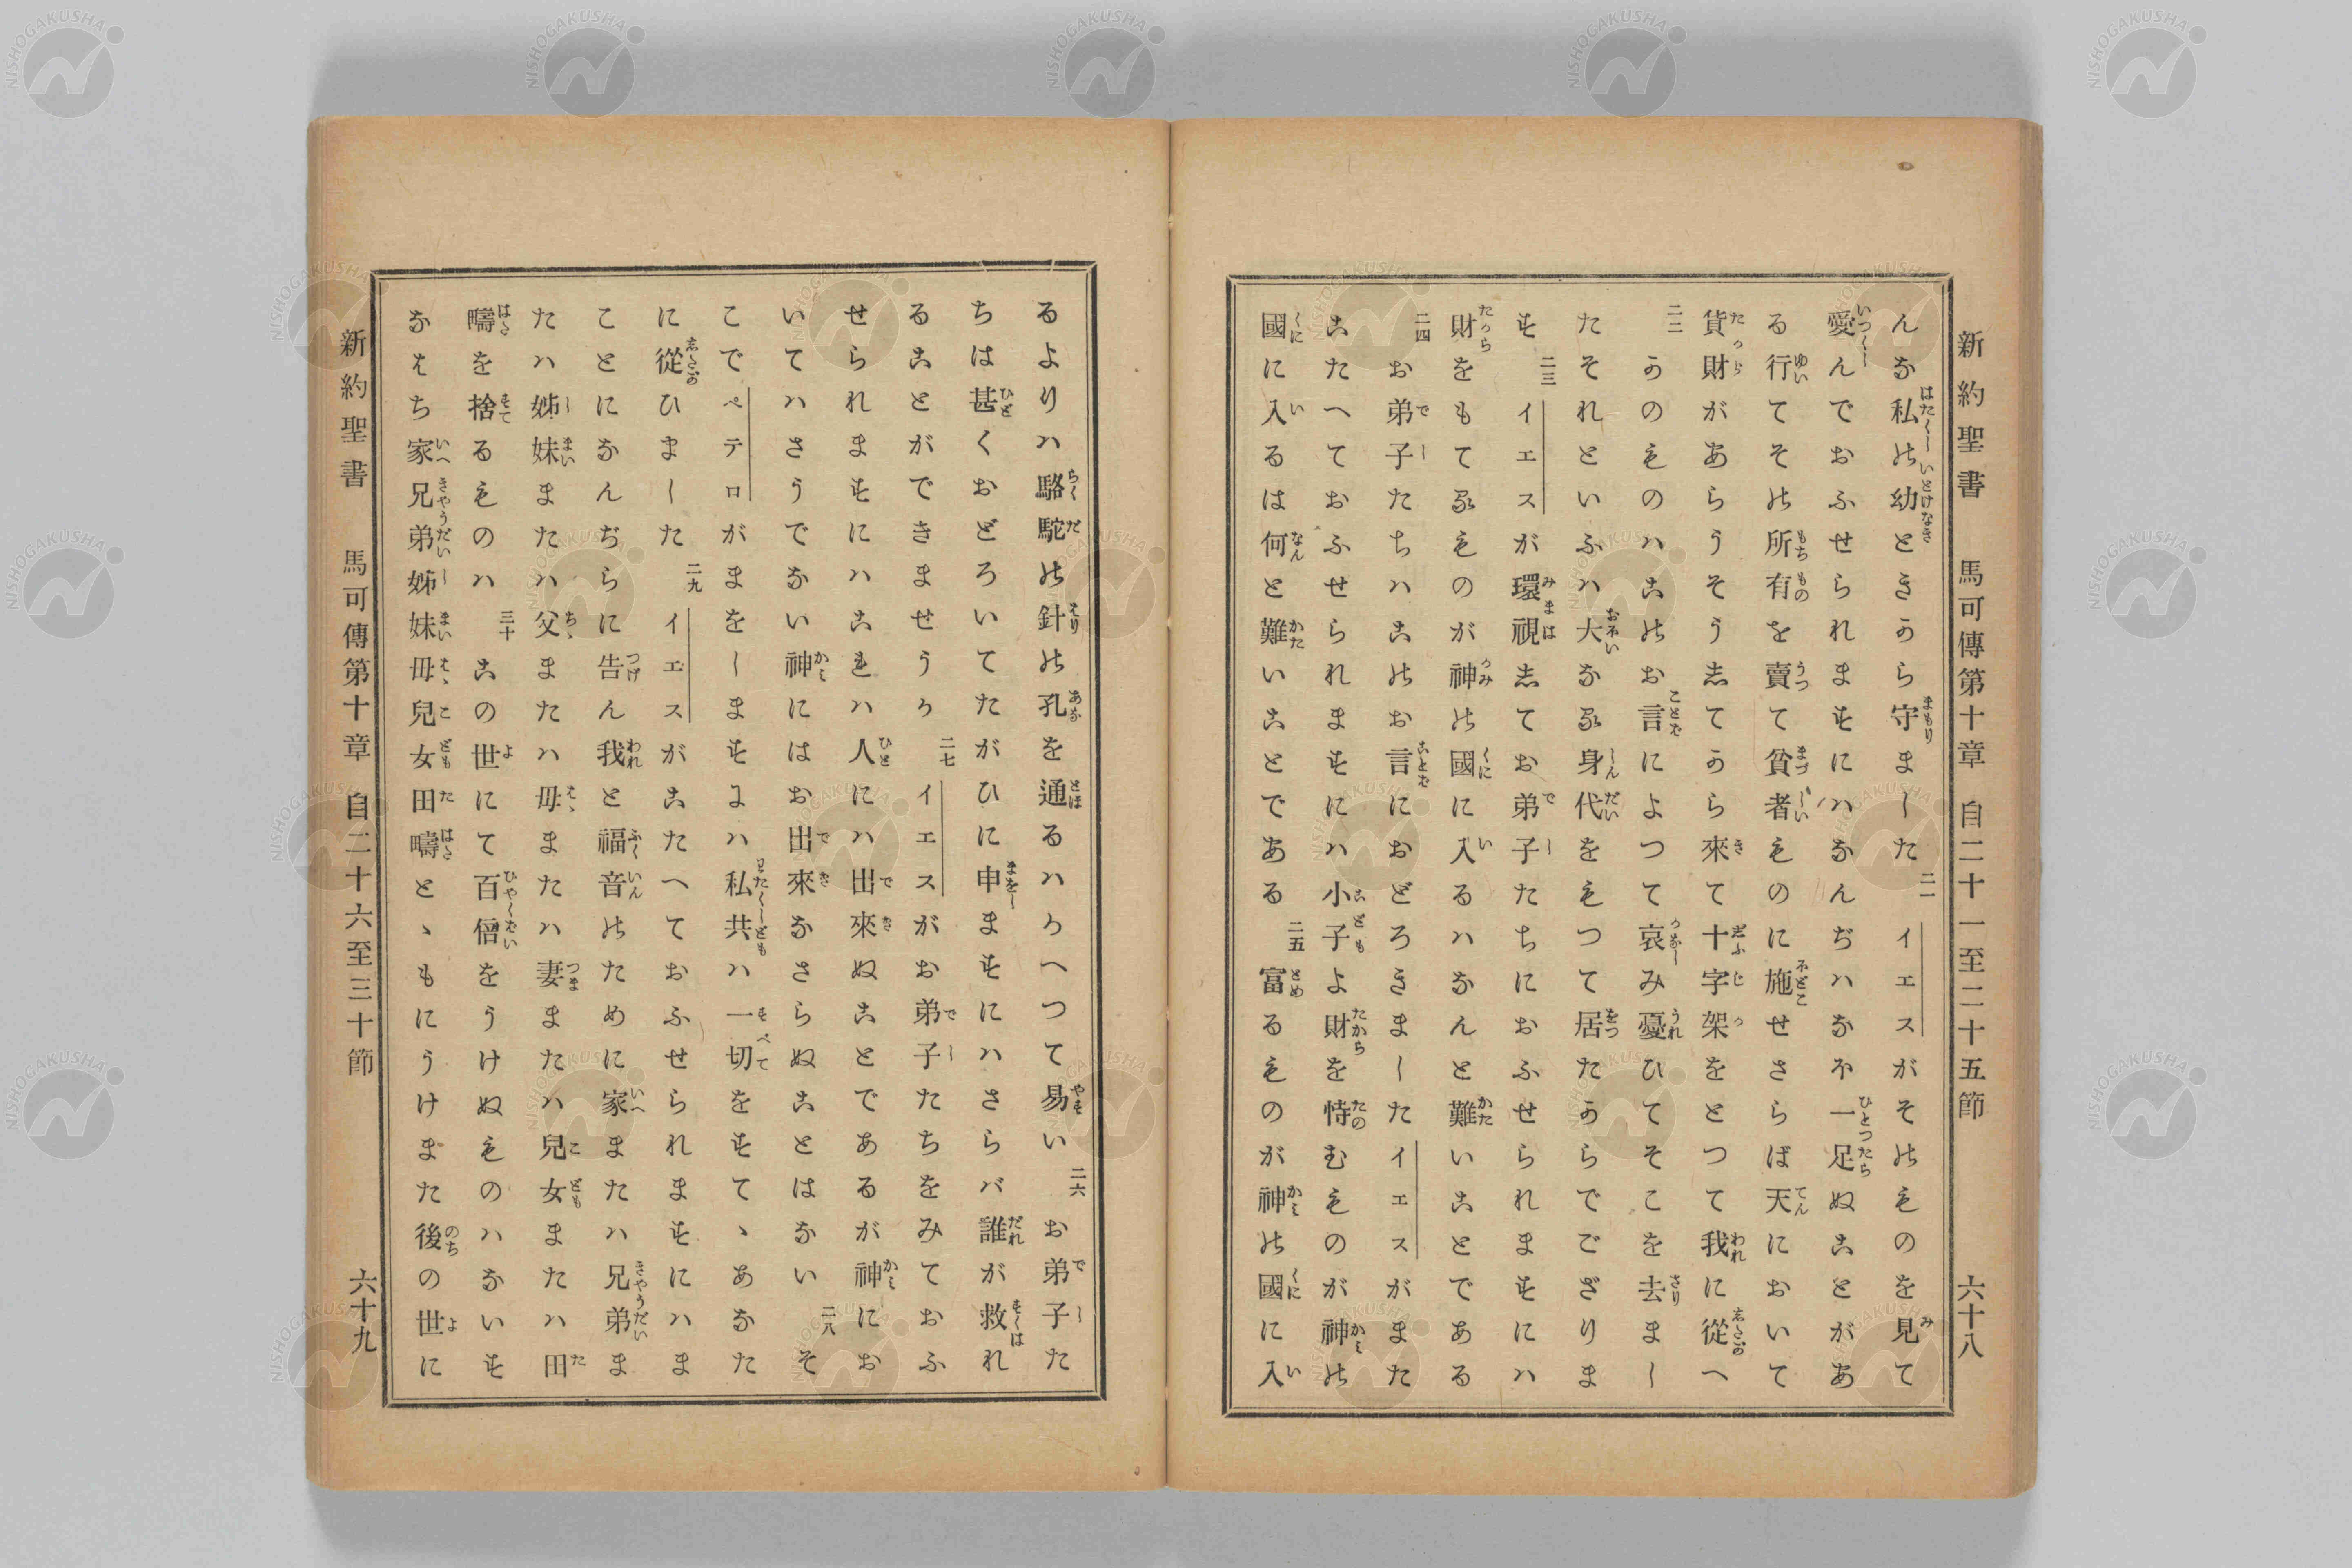 新約聖書 馬可傳第十章 自二十一至二十五節 六十八
んな私の幼ときから守ました 二一 イエスがそのものを見て
愛んでおふせられますにハなんぢハなほ一足ぬことがあ
る行てその所有を賣て貧者ものに施せさらば天において
貨財があらうそうしてから來て十字架をとつて我に從へ
二二 かのものハこのお言によつて哀み憂ひてそこを去まし
たそれといふハ大なる身代をもつて居たからでござりま
す 二三 イエスが環視してお弟子たちにおふせられますにハ
財をもてるものが神の國に入るハなんと難いことである
二四 お弟子たちハこのお言におどろきました イエスがまた
こたへておふせられますにハ小子よ財を恃むものが神の
國に入るは何と難いことである 二五 富るものが神の國に入
るよりハ駱駝の針の孔を通るハかへつて易い 二六 お弟子た
ちは甚くおどろいてたがひに申ますにハさらバ誰が救れ
ることができませうか 二七 イエスがお弟子たちをみておふ
せられますにハこれハ人にハ出來ぬことであるが神にお
いてハさうでない神にはお出來なさらぬことはない 二八 そ
こでペテロがまをしますにハ私共ハ一切をすてゝあなた
に從ひました 二九 イエスがこたへておふせられますにハま
ことになんぢらに告ん我と福音のために家またハ兄弟ま
たハ姊妹またハ父またハ母またハ妻またハ兒女またハ田
疇を捨るものハ 三十 この世にて百倍をうけぬものハないす
なはち家兄弟姊妹母兒女田疇とゝもにうけまた後の世に
新約聖書 馬可傳第十章 自二十六至三十節 六十九
NISHOGAKUSHA